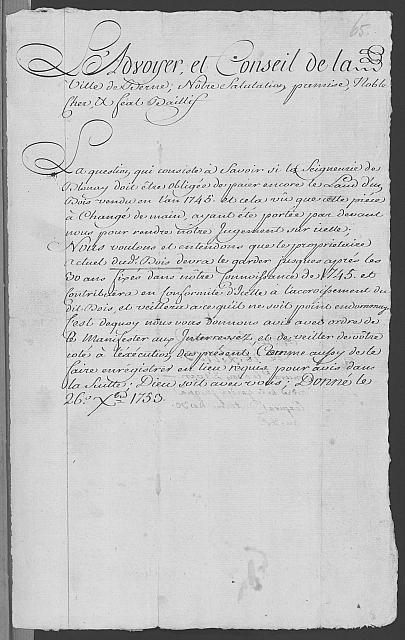 65.
L'Advoyer, et Conseil de la
Ville de Berne; Notre Salutation premise, Noble
Cher, & féal Baillif
La question, qui consiste à Savoir si la Seigneurie de
Blonay doit être obligée de payer encore le Laud d'un
Bois vendu en l'an 1745. et cela vû que cette pièce
à Changé de main, ayant été portée par devant
nous pour rendre nôtre Jugement sur icelle;
Nous voulons et entendons que le propriétaire
actuel dud: Bois devra le garder jusques après les
30 ans fixés dans nôtre Connoissance de 1745. et
Contribuera en Conformité d'icelle à l'accroissement du
dit Bois, et veillera à ce qu'il ne soit point endommagé,
C'est dequoy nous vous donnons avis avec ordre de
le Manifester aux Interressez, et de veiller de vôtre
côté à l'exécution des présent Comme aussy de le
faire enregistrer en lieu requis, pour avis dans
la Suitte; Dieu soit avec vous; Donné le
26.e Xbre 1753.